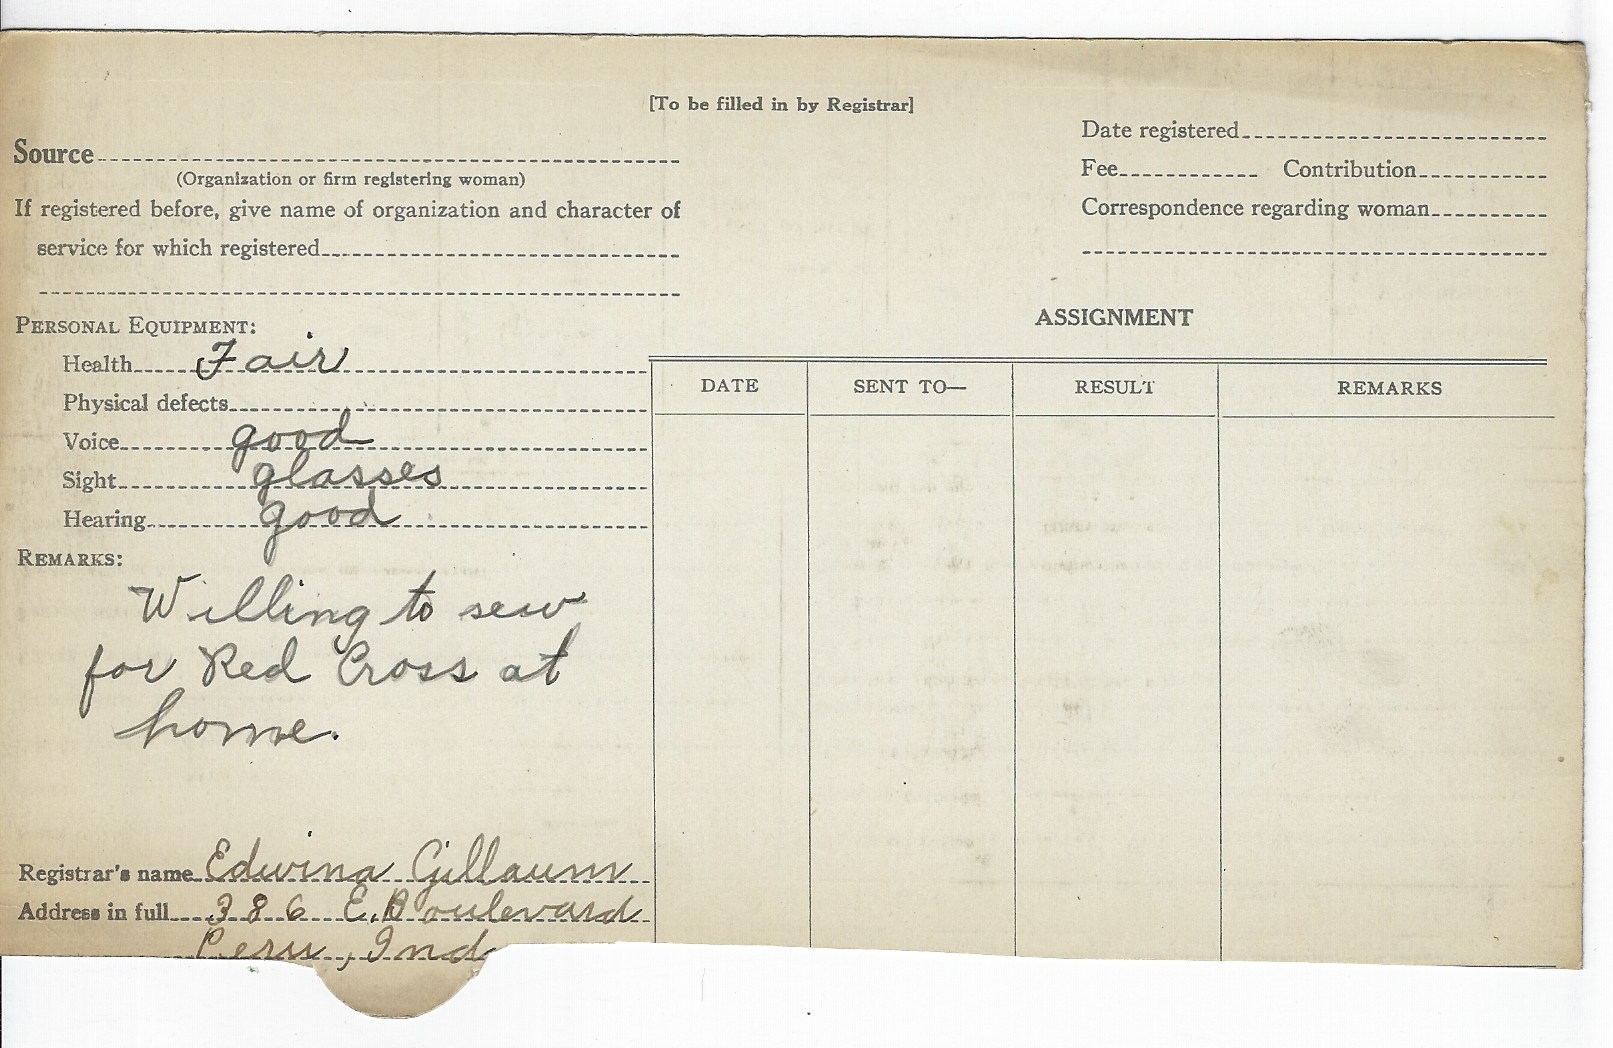 [To be filled in by Registrar]
Source
(Organization or firm registering woman)
If registered before, give name of organization and character of
service for which registered
Date registered
Fee Contribution
Correspondence regarding woman
PERSONAL EQUIPMENT:
Health Fair
Physical defects
Voice good
Sight glasses
Hearing good
REMARKS:
Willing to sew
for Red Cross at
home.
Registrar's name Edwina Gillaum
Address in full 386 E. Boulevard
Peru, Ind
ASSIGNMENT
DATE SENT TO— RESULT REMARKS